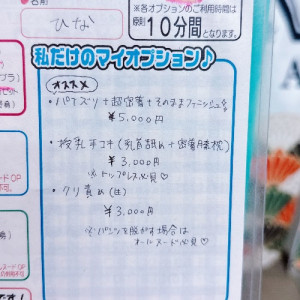 ●名前
ひな
※各オプションのご利用時間は
原則10分間となります。
私だけのマイオプション♪
オススメ
・パイズリ+超密着+そのままフィニッシュ
¥5,000円
・授乳手コキ(乳首舐め+密着膝枕)
¥3,000円
※トップレス必見♡
・クリ責め(注)
¥3,000円
※パンツを脱がす場合は
オールヌード必見♡